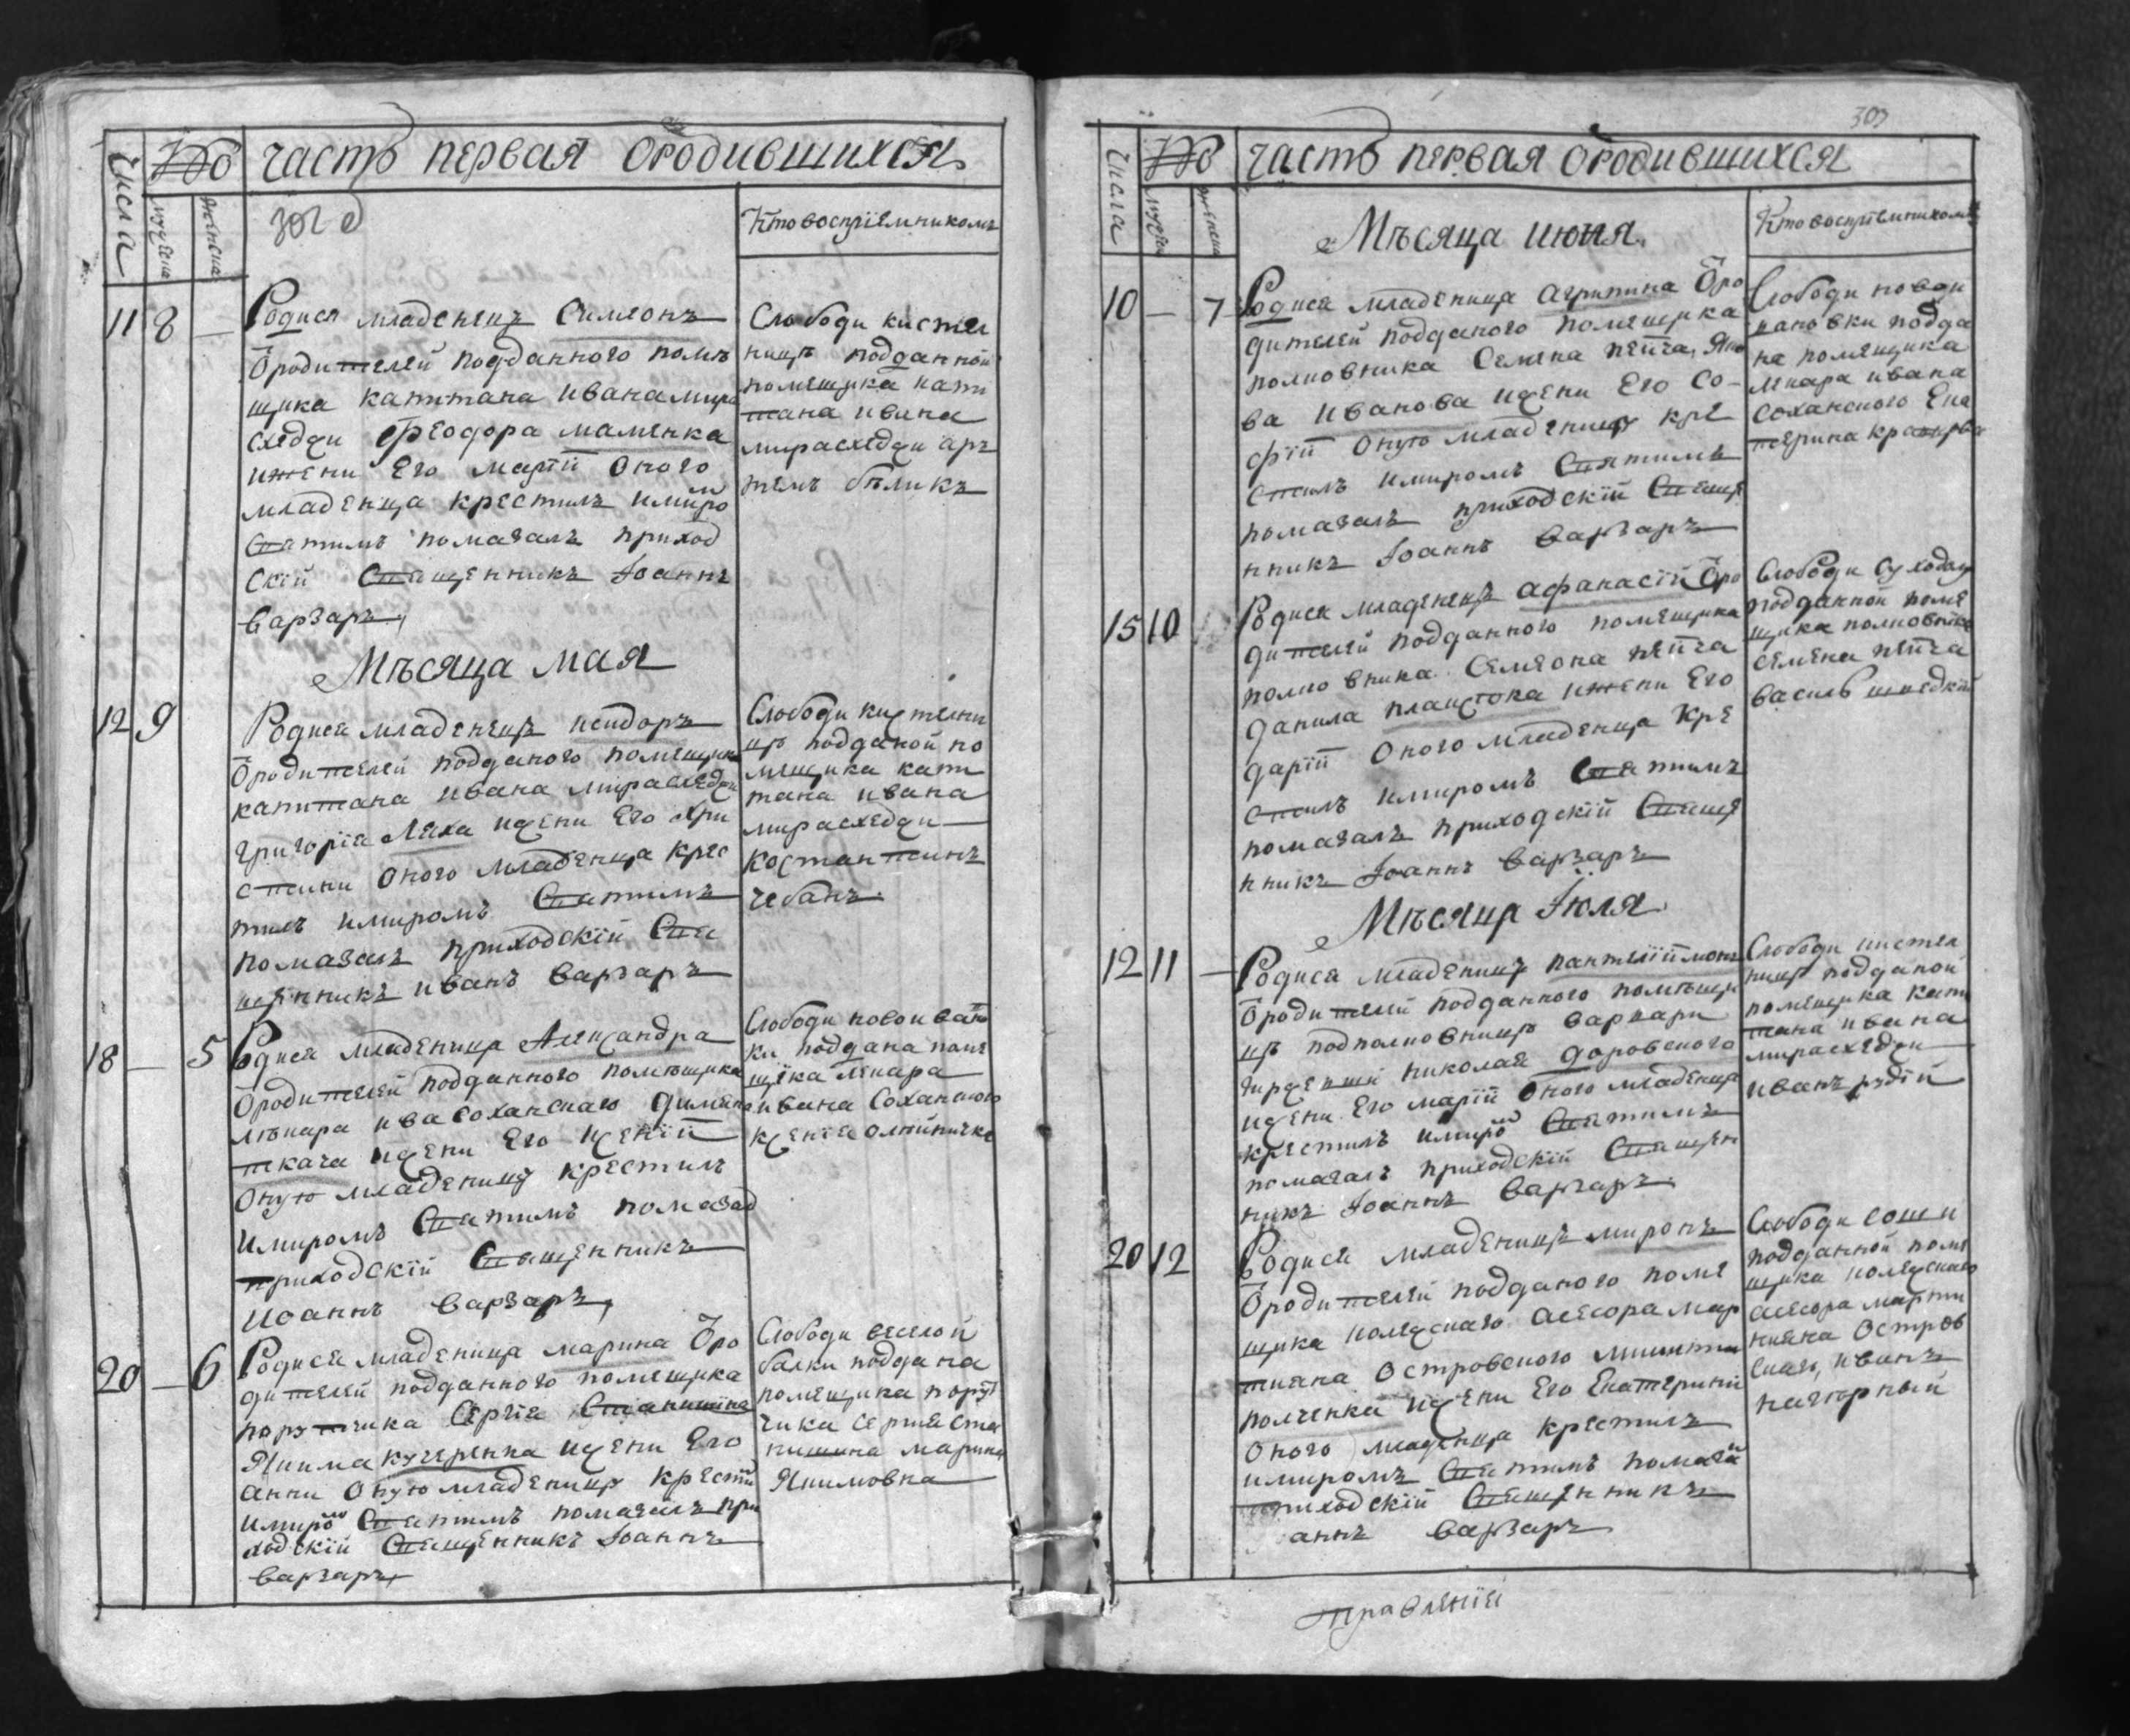 Числа
№
часть первая ородившихся
мужеска
женска
Кто восприемникомъ
11 8 —
Родися младенецъ Симеонъ
ѿродителей подданного помѣ
щика капитана Ивана мира
схеджи Феодора маменка
ижени Его марїи оного
младенца крестилъ имѵро
Святимъ помазалъ приход
скїй Священникъ Іоаннъ
Варзаръ
Слободи кистел
ницѣ подданной
помещика капи
тана ивана
мирасхеджи ар
темъ бѣликъ
Мѣсяца мая
12 9
Родися младенецъ исидоръ
ѿродителей подданого помещика
капитана ивана мирасхеджи
григорїя Ляха ижени Его Хри
стини оного младенца крес
тилъ имиромъ Святимъ
помазалъ приходскїй Свя
щенникъ иванъ Варзаръ
Слободи кистелни
цѣ подданой по
мещика капи
тана ивана
мирасхеджи
костантинъ
чебанъ
18 — 5
Родися младеница Александра
ѿродителей подданного помѣщика
лѣкара ива соханскаго
ткача ижени Его
оную младеницу крестилъ
имиромъ Святимъ помазал
приходскїй Священникъ
Иоаннъ Варзаръ
Слободи новоивано
ки поддана поме
щика лекара
ивана Соханского
20 — 6
Родися младеница марина ѿро
дителей подданного помещика
порутчика Сергїя
Якима кучеренка ижени Его
анни оную младеницу крести
имиро Святимъ помазалъ при
ходскїй Священникъ Іоаннъ
Варзаръ
Слободи веселой
балки поддана
помещика пору
чика сергия ста
марина
Якимовна
303
Числа
№
часть первая ородившихся
мужеска
женска
Кто восприемникомъ
Мѣсяца июня
10 — 7
Родися младеница агрипина ѿро
дителей подданого помещика
полковника Семена Яко
ва Иванова ижени Его Со-
фїи оную младеницу кре
стилъ имиромъ Святимъ
помазалъ приходскїй Свяще
нникъ Іоаннъ Варзаръ
Слободи новои
вановки подда
на помещика
лекара ивана
Соханского Ека
терина
15 10
Родися младенецъ афанасїй ѿро
дителей подданного помещика
полковника Семеона
данила ижени Его
дарїи оного младенца кре
стилъ имиромъ Святимъ
помазалъ приходскїй Свяще
нникъ Іоаннъ Варзаръ
Слободи
подданной поме
щика полковника
семена
василь
Мѣсяца Іюля
12 11 —
Родися младенецъ
ѿродителей подданного помѣщи
цѣ подполковницѣ варвари
николая даровского
ижени Его марїи оного младенца
крестилъ имиро Святимъ
помазалъ приходскїй Священ
никъ Іоаннъ Варзаръ
Слободи кистел
ницѣ подданой
помещика капи
тана ивана
мирасхеджи
иванъ рудїй
20 12
Родися младенецъ миронъ
ѿродителей подданого поме
щика колежскаго асесора мар
тияна островского
полченка ижени Его Екатерини
оного младенца крестилъ
имиромъ Святимъ помаза
приходскїй Священникъ
аннъ Варзаръ
Слободи
подданной поме
щика колежскаго
асесора марти
нияна остров
скаго, иванъ
нагорный
правленїе